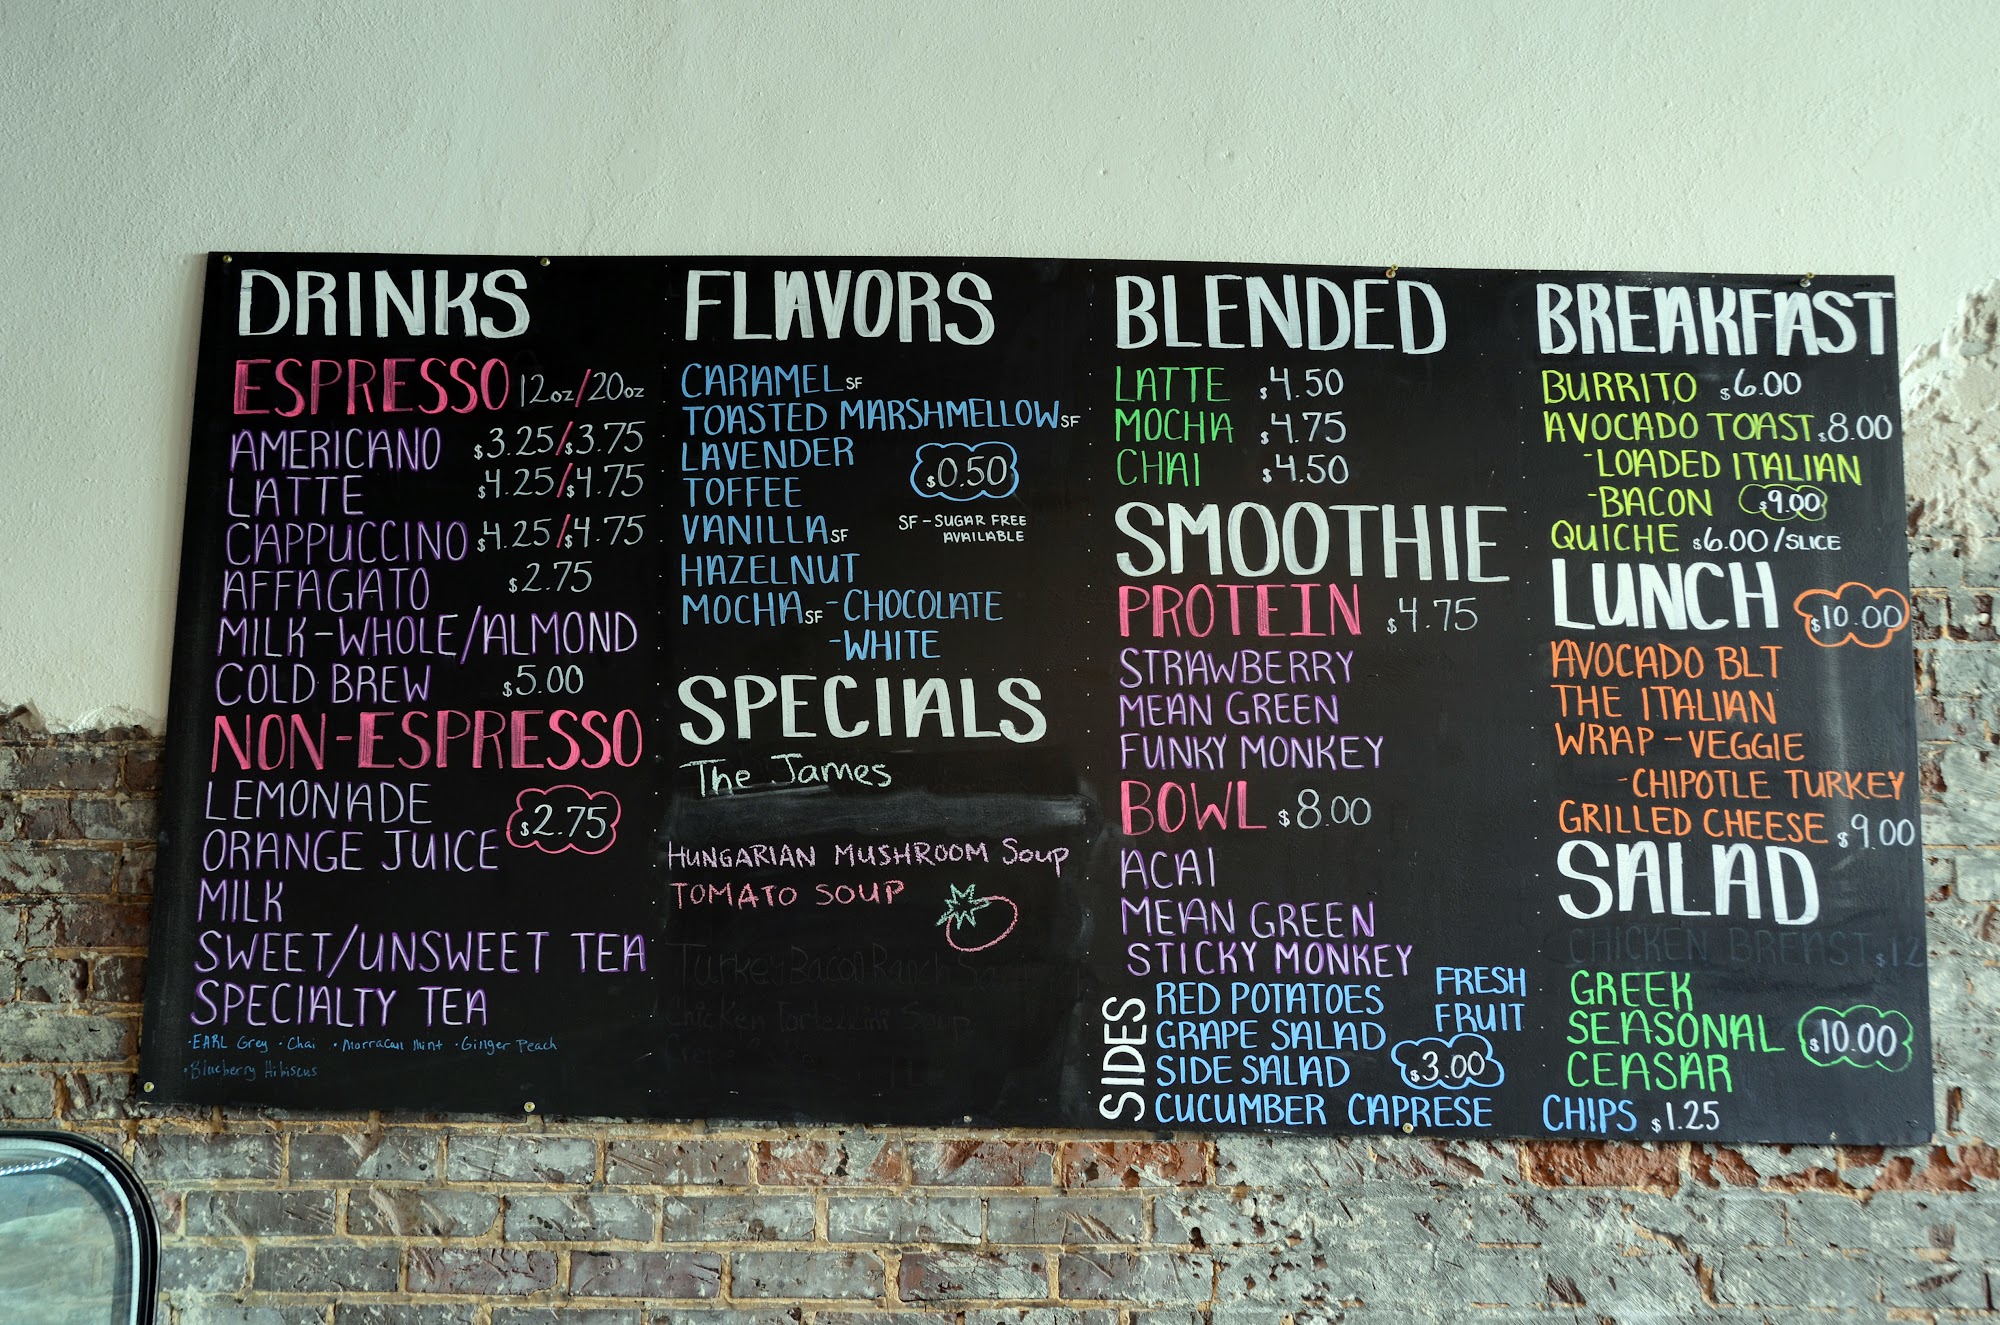 DRINKS
ESPRESSO 12oz/20oz
AMERICANO $3.25/$3.75
LATTE $4.25/$4.75
CAPPUCCINO $4.25/$4.75
AFFAGATO $2.75
MILK-WHOLE/ALMOND
COLD BREW $5.00
NON-ESPRESSO
LEMONADE
$2.75
ORANGE JUICE
MILK
SWEET/UNSWEET TEA
SPECIALTY TEA
·EARL Grey ·Chai ·Morracan Mint ·Ginger Peach
·Blueberry Hibiscus
FLAVORS
CARAMEL SF
TOASTED MARSHMELLOW SF
LAVENDER
$0.50
TOFFEE
VANILLA SF
SF-SUGAR FREE
AVAILABLE
HAZELNUT
MOCHA SF -CHOCOLATE
-WHITE
SPECIALS
The James
HUNGARIAN MUSHROOM Soup
TOMATO SOUP
Turkey Bacon Ranch
Chicken Tortellini Soup
BLENDED
LATTE $4.50
MOCHA $4.75
CHAI $4.50
SMOOTHIE
PROTEIN $4.75
STRAWBERRY
MEAN GREEN
FUNKY MONKEY
BOWL $8.00
ACAI
MEAN GREEN
STICKY MONKEY
SIDES
RED POTATOES
FRESH
FRUIT
GRAPE SALAD
SIDE SALAD
$3.00
CUCUMBER CAPRESE
CHIPS $1.25
BREAKFAST
BURRITO $6.00
AVOCADO TOAST $8.00
-LOADED ITALIAN
-BACON $9.00
QUICHE $6.00/SLICE
LUNCH
$10.00
AVOCADO BLT
THE ITALIAN
WRAP-VEGGIE
-CHIPOTLE TURKEY
GRILLED CHEESE $9.00
SALAD
CHICKEN BREAST $12
GREEK
SEASONAL
$10.00
CEASAR